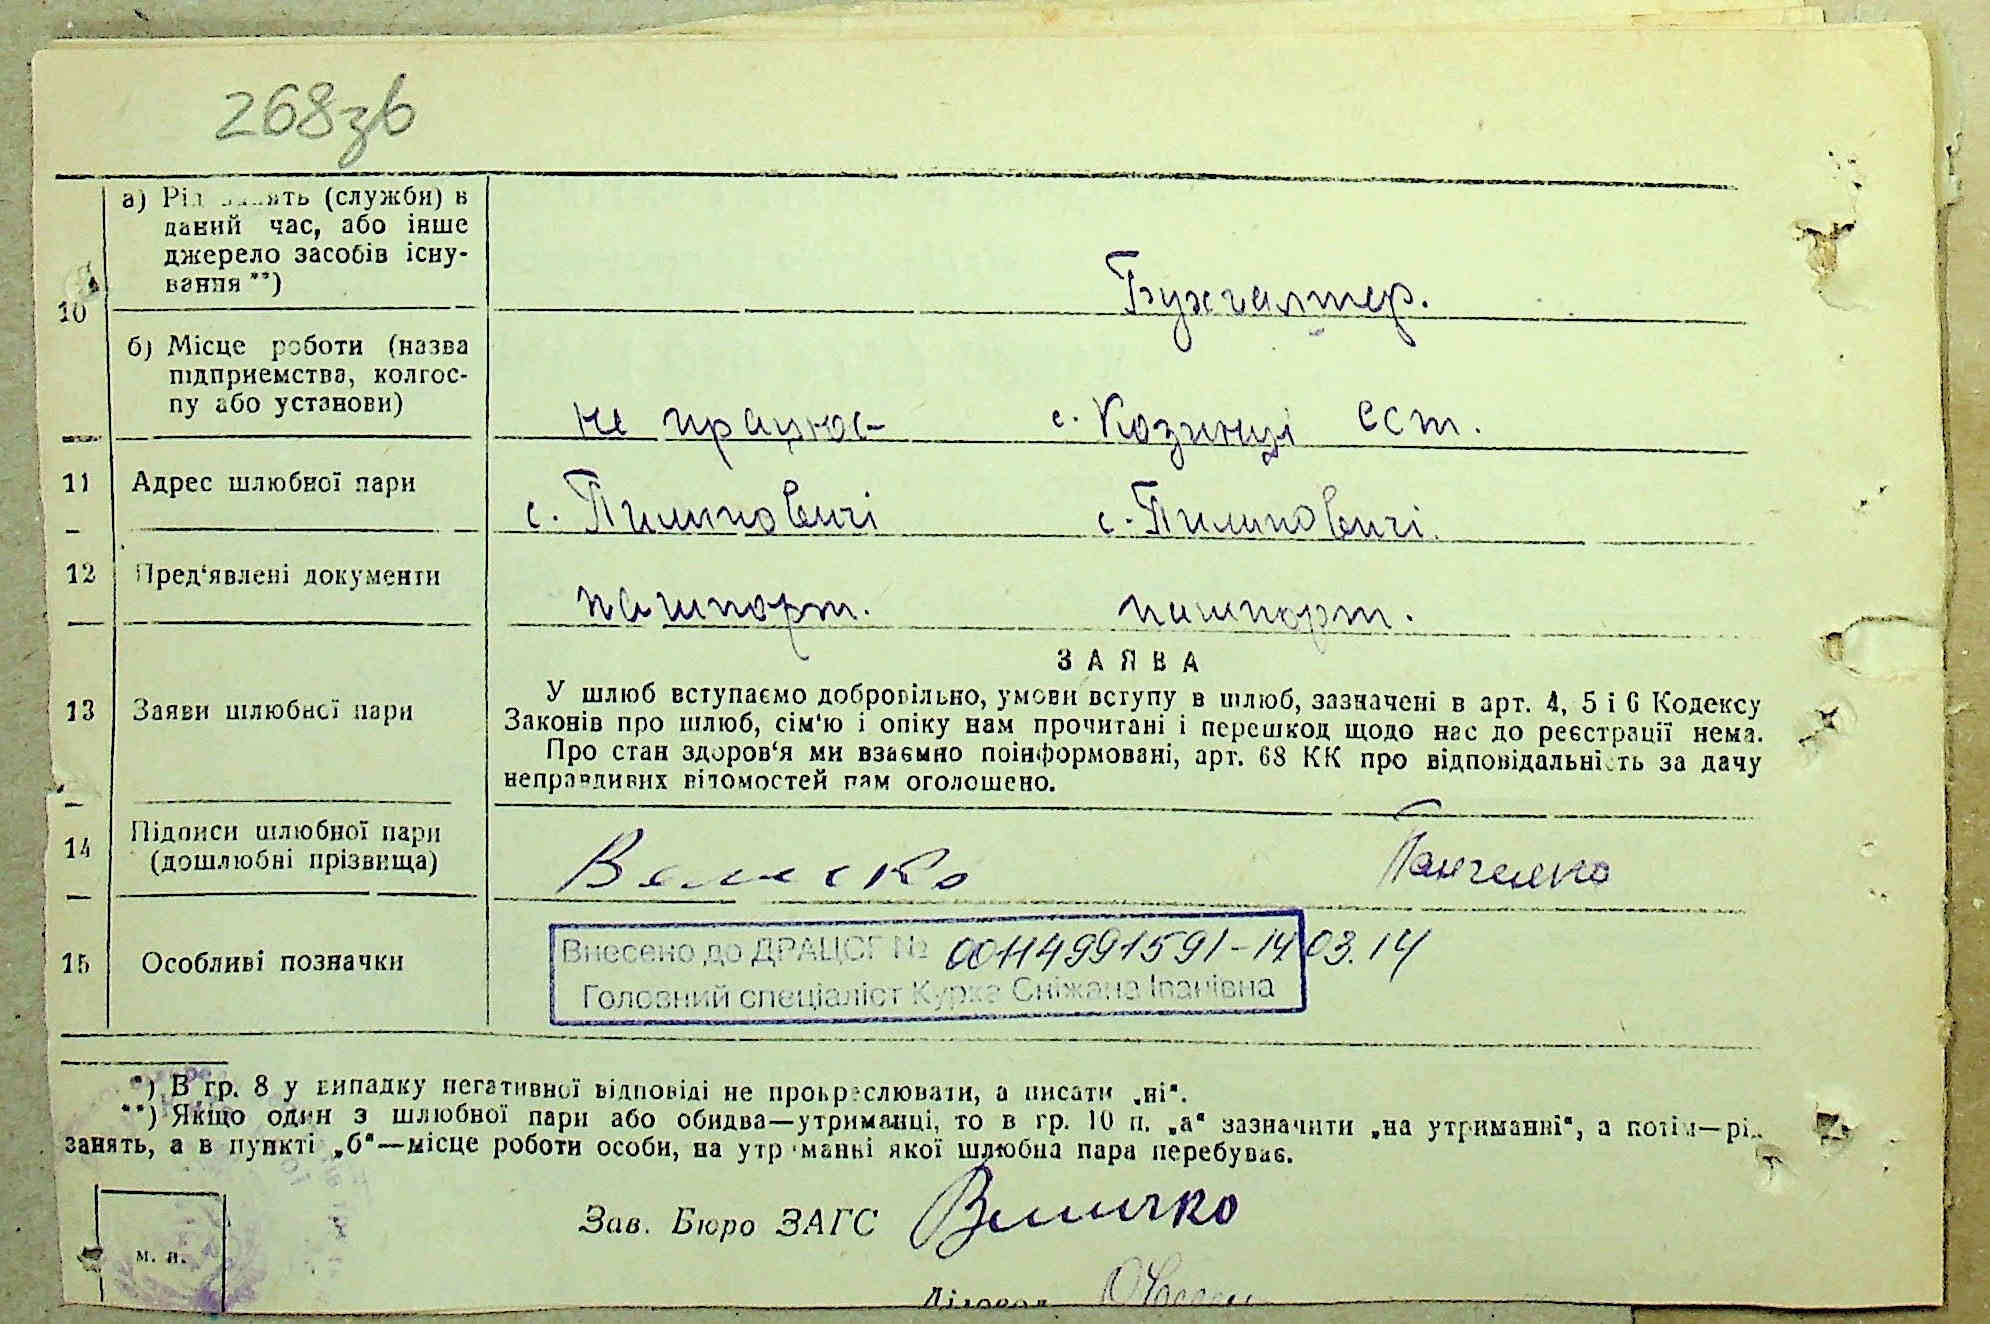 268зв
а) Рід занять (служби) в
даний час, або інше
джерело засобів існу-
вання **)
Бухгалтер.
10
б) Місце роботи (назва
підприємства, колгос-
пу або установи)
не працює с. Козинці сст.
11 Адрес шлюбної пари
с. Пилиповичі с. Пилиповичі.
12 Пред'явлені документи
пашпорт. пашпорт.
ЗАЯВА
13 Заяви шлюбної пари
У шлюб вступаємо добровільно, умови вступу в шлюб, зазначені в арт. 4, 5 і 6 Кодексу
Законів про шлюб, сім'ю і опіку нам прочитані і перешкод щодо нас до реєстрації нема.
Про стан здоров'я ми взаємно поінформовані, арт. 68 КК про відповідальність за дачу
неправдивих відомостей нам оголошено.
14 Підписи шлюбної пари
(дошлюбні прізвища)
Панченко
15 Особливі позначки
Внесено до ДРАЦСГ № 00114991591-14.03.14
Головний спеціаліст Курка Сніжана Іванівна
*) В гр. 8 у випадку негативної відповіді не прокреслювати, а писати „ні“.
**) Якщо один з шлюбної пари або обидва—утриманці, то в гр. 10 п. „а“ зазначити „на утриманні“, а потім—рід
занять, а в пункті „б“—місце роботи особи, на утриманні якої шлюбна пара перебуває.
Зав. Бюро ЗАГС Величко
м. п.
Діловод